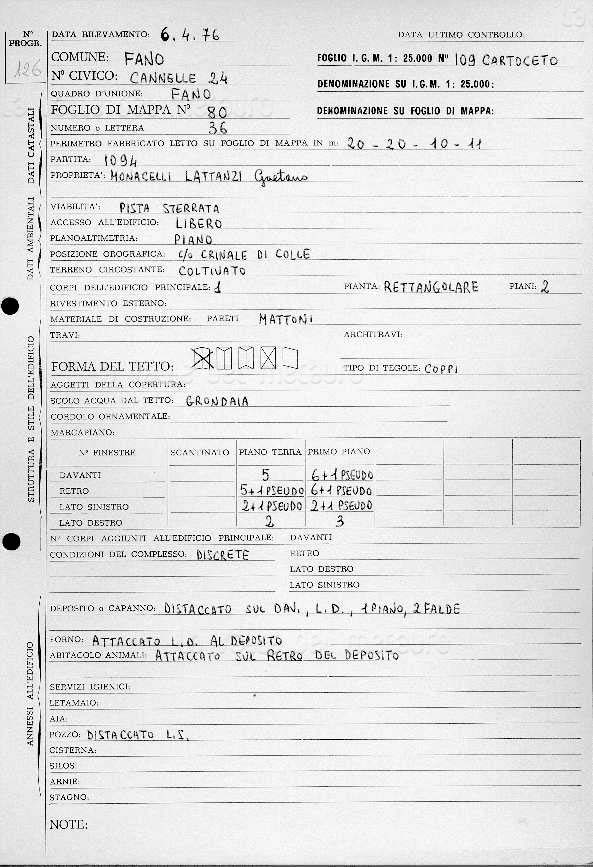 Nº PROGR. 126
DATA RILEVAMENTO: 6.4.76 DATA ULTIMO CONTROLLO:
COMUNE: FANO FOGLIO I. G. M. 1: 25.000 Nº 109 CARTOCETO
Nº CIVICO: CANNELLE 24 DENOMINAZIONE SU I. G. M. 1: 25.000:
QUADRO D'UNIONE: FANO
FOGLIO DI MAPPA Nº 80 DENOMINAZIONE SU FOGLIO DI MAPPA:
NUMERO o LETTERA 36
PERIMETRO FABBRICATO LETTO SU FOGLIO DI MAPPA IN m: 20 - 20 - 10 - 11
PARTITA: 1094
PROPRIETA': MONACELLI LATTANZI Gaetano
DATI CATASTALI
VIABILITA': PISTA STERRATA
ACCESSO ALL'EDIFICIO: LIBERO
PLANOALTIMETRIA: PIANO
POSIZIONE OROGRAFICA: c/o CRINALE DI COLLE
TERRENO CIRCOSTANTE: COLTIVATO
DATI AMBIENTALI
CORPI DELL'EDIFICIO PRINCIPALE: 1 PIANTA RETTANGOLARE PIANI: 2
RIVESTIMENTO ESTERNO:
MATERIALE DI COSTRUZIONE: PARETI MATTONI
TRAVI: ARCHITRAVI:
FORMA DEL TETTO: TIPO DI TEGOLE: COPPI
AGGETTI DELLA COPERTURA:
SCOLO ACQUA DAL TETTO: GRONDAIA
CORDOLO ORNAMENTALE:
MARCAPIANO:
Nº FINESTRE SCANTINATO PIANO TERRA PRIMO PIANO
DAVANTI 5 6+1 PSEUDO
RETRO 5+1 PSEUDO 6+1 PSEUDO
LATO SINISTRO 2+1 PSEUDO 2+1 PSEUDO
LATO DESTRO 2 3
Nº CORPI AGGIUNTI ALL'EDIFICIO PRINCIPALE: DAVANTI
CONDIZIONI DEL COMPLESSO: DISCRETE RETRO
LATO DESTRO
LATO SINISTRO
STRUTTURA E STILE DELL'EDIFICIO
DEPOSITO o CAPANNO: DISTACCATO SUL DAV., L.D., 1 PIANO, 2 FALDE
FORNO: ATTACCATO L.D. AL DEPOSITO
ABITACOLO ANIMALI: ATTACCATO SUL RETRO DEL DEPOSITO
SERVIZI IGIENICI:
LETAMAIO:
AIA:
POZZO: DISTACCATO L.S.
CISTERNA:
SILOS:
ARNIE:
STAGNO:
ANNESSI ALL'EDIFICIO
NOTE: